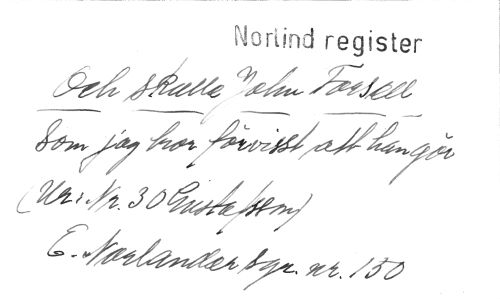 Norlind register
Och skulle John Forsell
som jag tror förvisst att han gör
(Ur: Nr. 30 Gustafson)
E. Norlander sgr. nr. 150